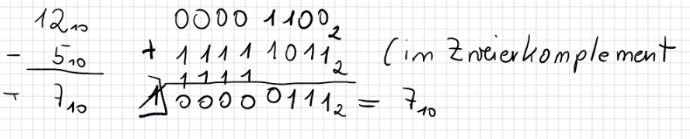 12₁₀ 0000 1100₂
- 5₁₀ + 1111 1011₂ (im Zweierkomplement
1111
= 7₁₀ 1 0000 0111₂ = 7₁₀